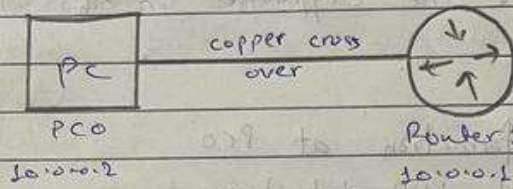 copper cross
PC
over
PC0
Router
10.0.0.2
10.0.0.1